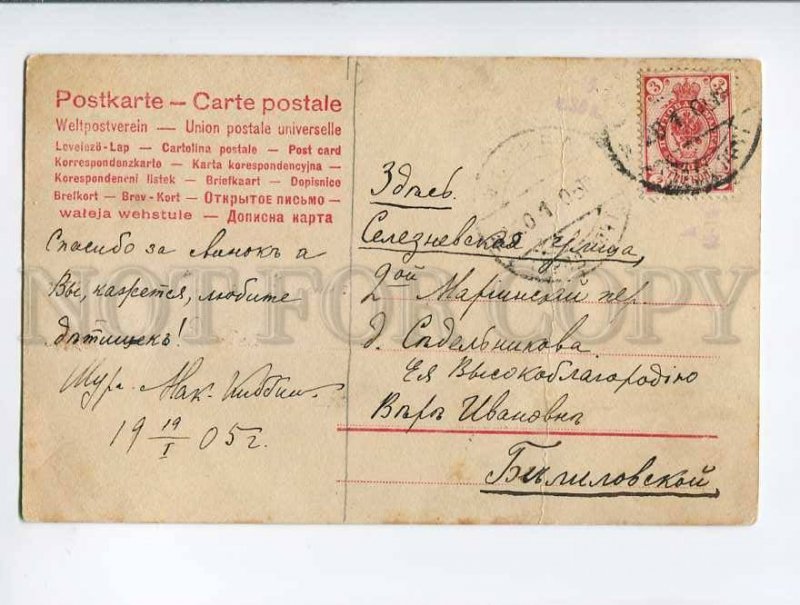 Postkarte — Carte postale
Weltpostverein — Union postale universelle
Levelező-Lap — Cartolina postale — Post card
Korrespondenzkarte — Karta korespondencyjna —
Korespondeneni listek — Briefkaart — Dopisnice
Brefkort — Brev-Kort — Открытое письмо —
wateja wehstule — Дописна карта
Спасибо за а
Вы, кажется, любите
дѣтишекъ!
Шура
19 19/I 05 г.
3
Здѣсь.
Селезневская улица,
2ой Маріинскій пер
д. Сѣдельникова
Ея Высокоблагородію
Вѣрѣ Ивановнѣ
Билиловской
NOT FOR COPY